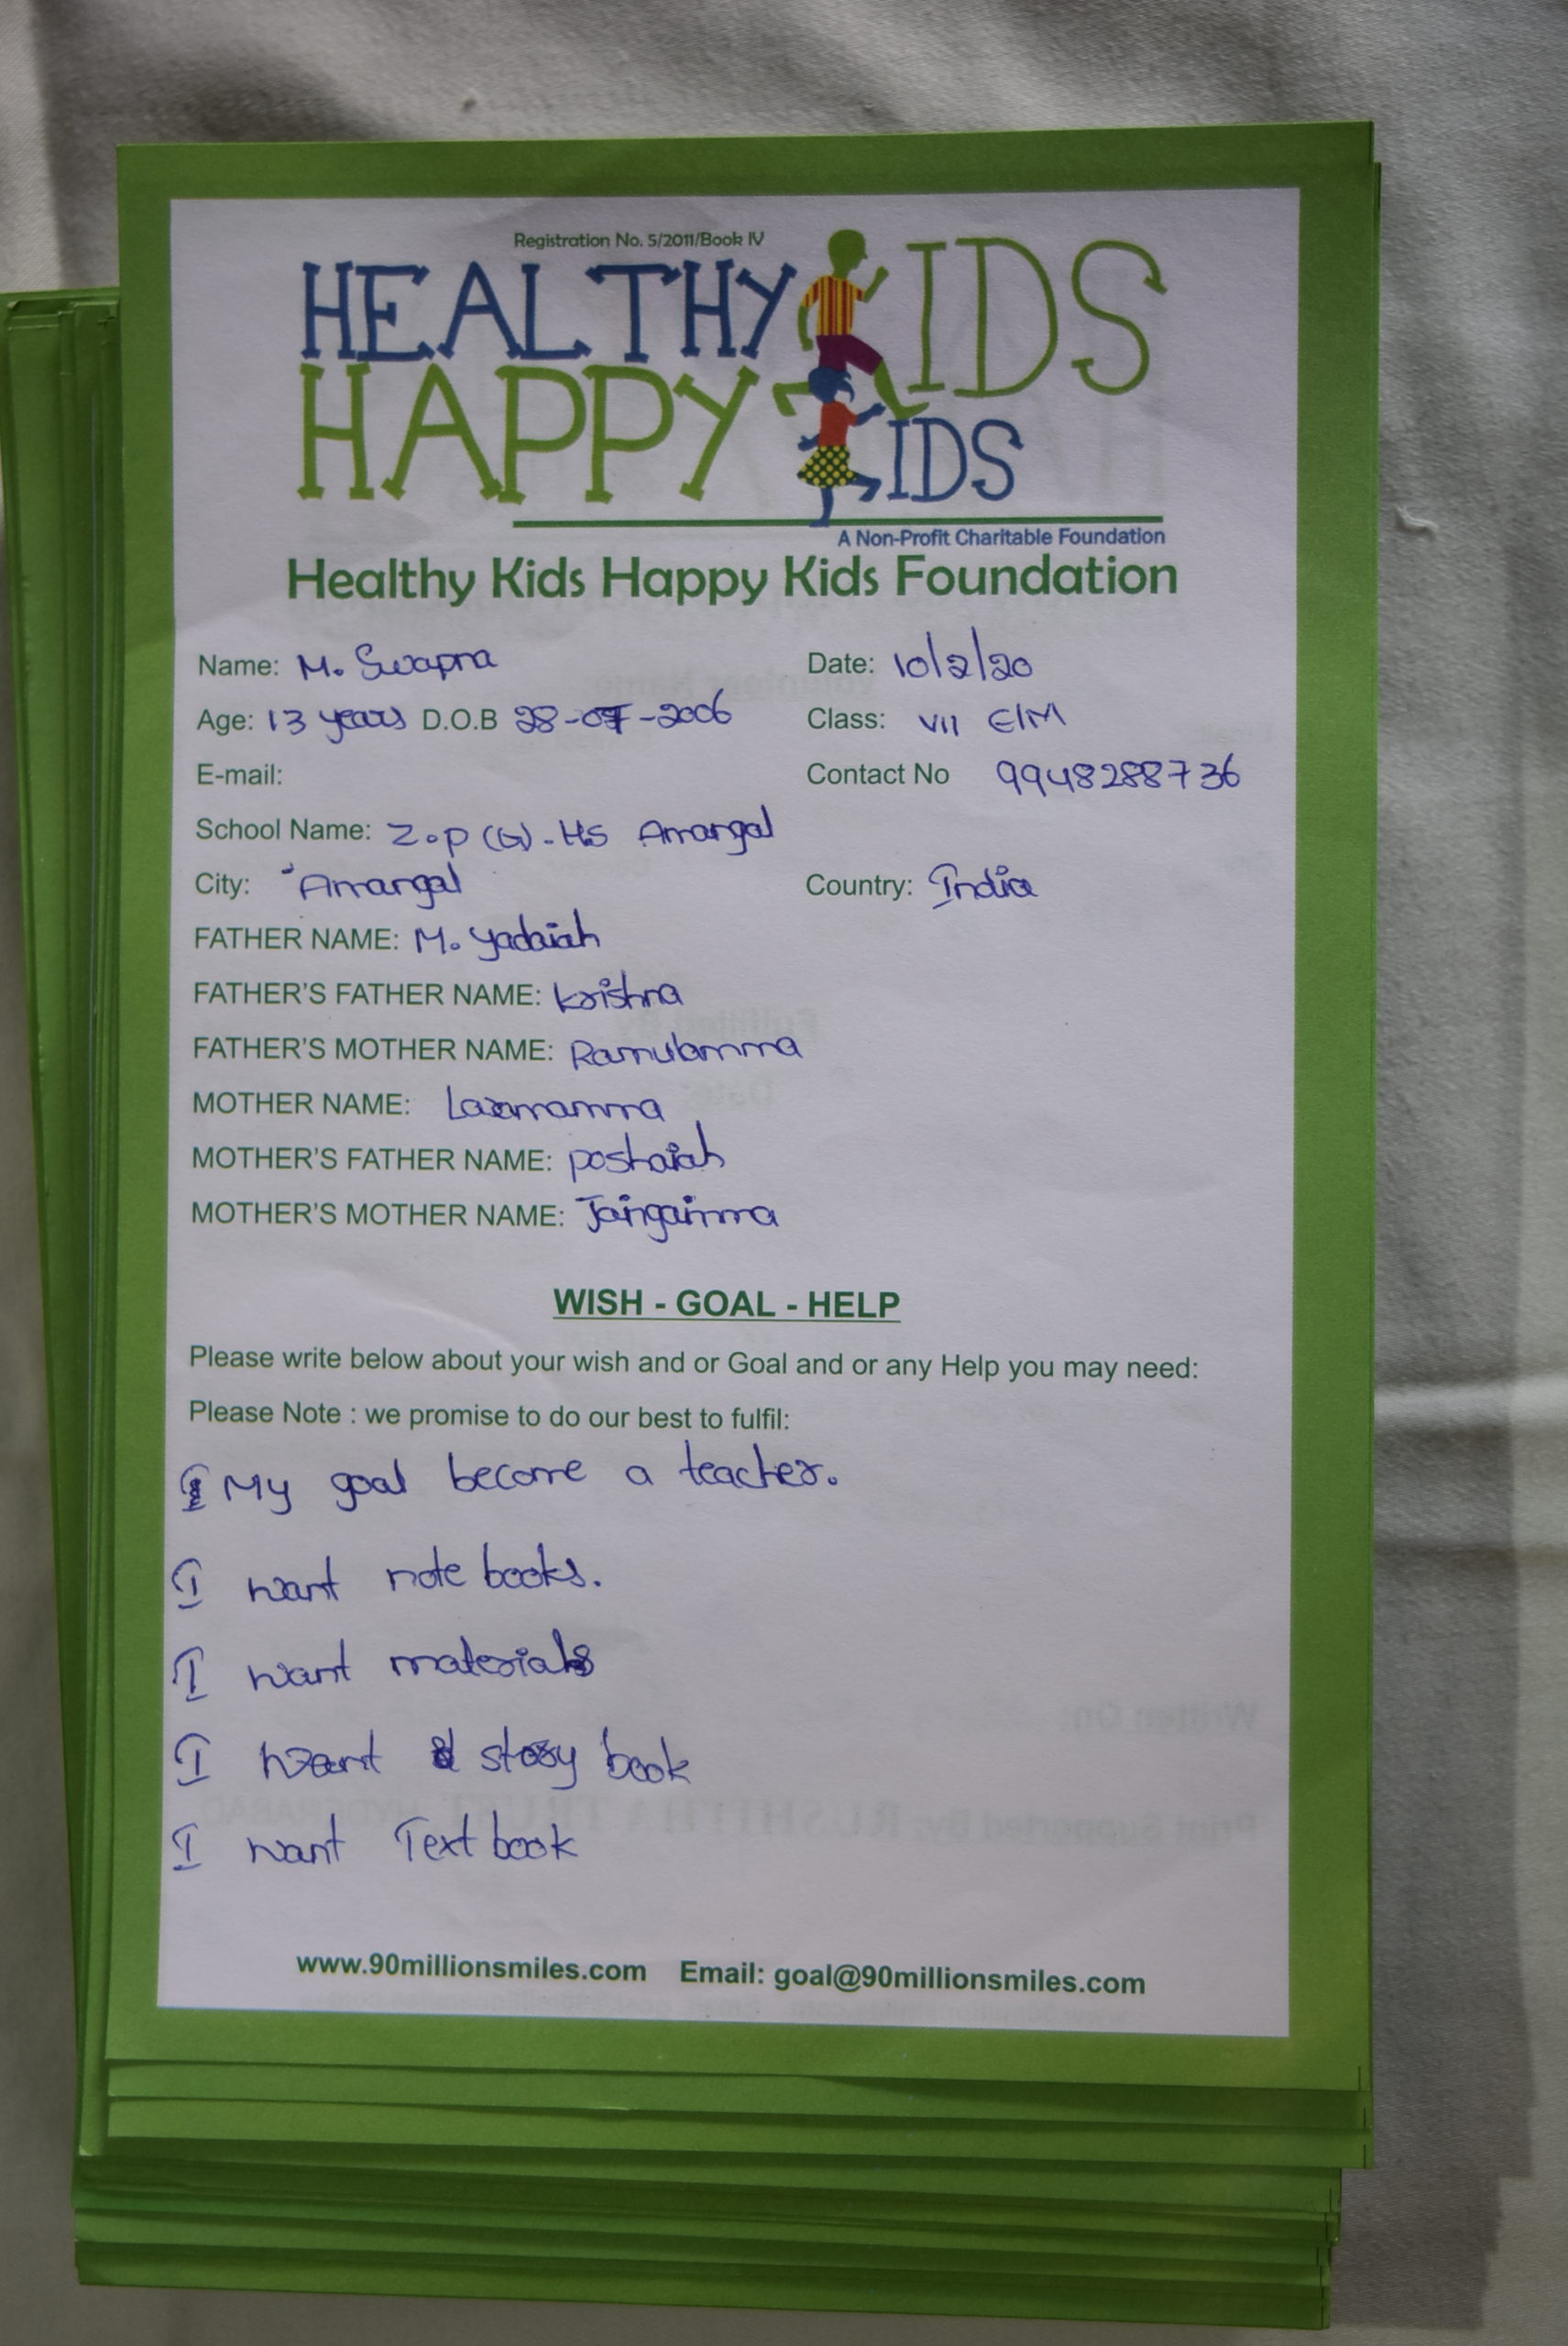 Registration No. 5/2011/Book IV
HEALTHY KIDS
HAPPY KIDS
A Non-Profit Charitable Foundation
Healthy Kids Happy Kids Foundation
Name: M. Swapna Date: 10/2/20
Age: 13 years D.O.B 28-07-2006 Class: VII E/M
E-mail: Contact No 9948288736
School Name: Z.p (G).Hs Amangal
City: Amangal Country: India
FATHER NAME: M. yadaiah
FATHER'S FATHER NAME: krishna
FATHER'S MOTHER NAME: Ramulamma
MOTHER NAME: Laxmamma
MOTHER'S FATHER NAME: poshaiah
MOTHER'S MOTHER NAME: Jangamma
WISH - GOAL - HELP
Please write below about your wish and or Goal and or any Help you may need:
Please Note : we promise to do our best to fulfil:
My goal become a teacher.
I want note books.
I want materials
I want story book
I want Text book
www.90millionsmiles.com Email: goal@90millionsmiles.com